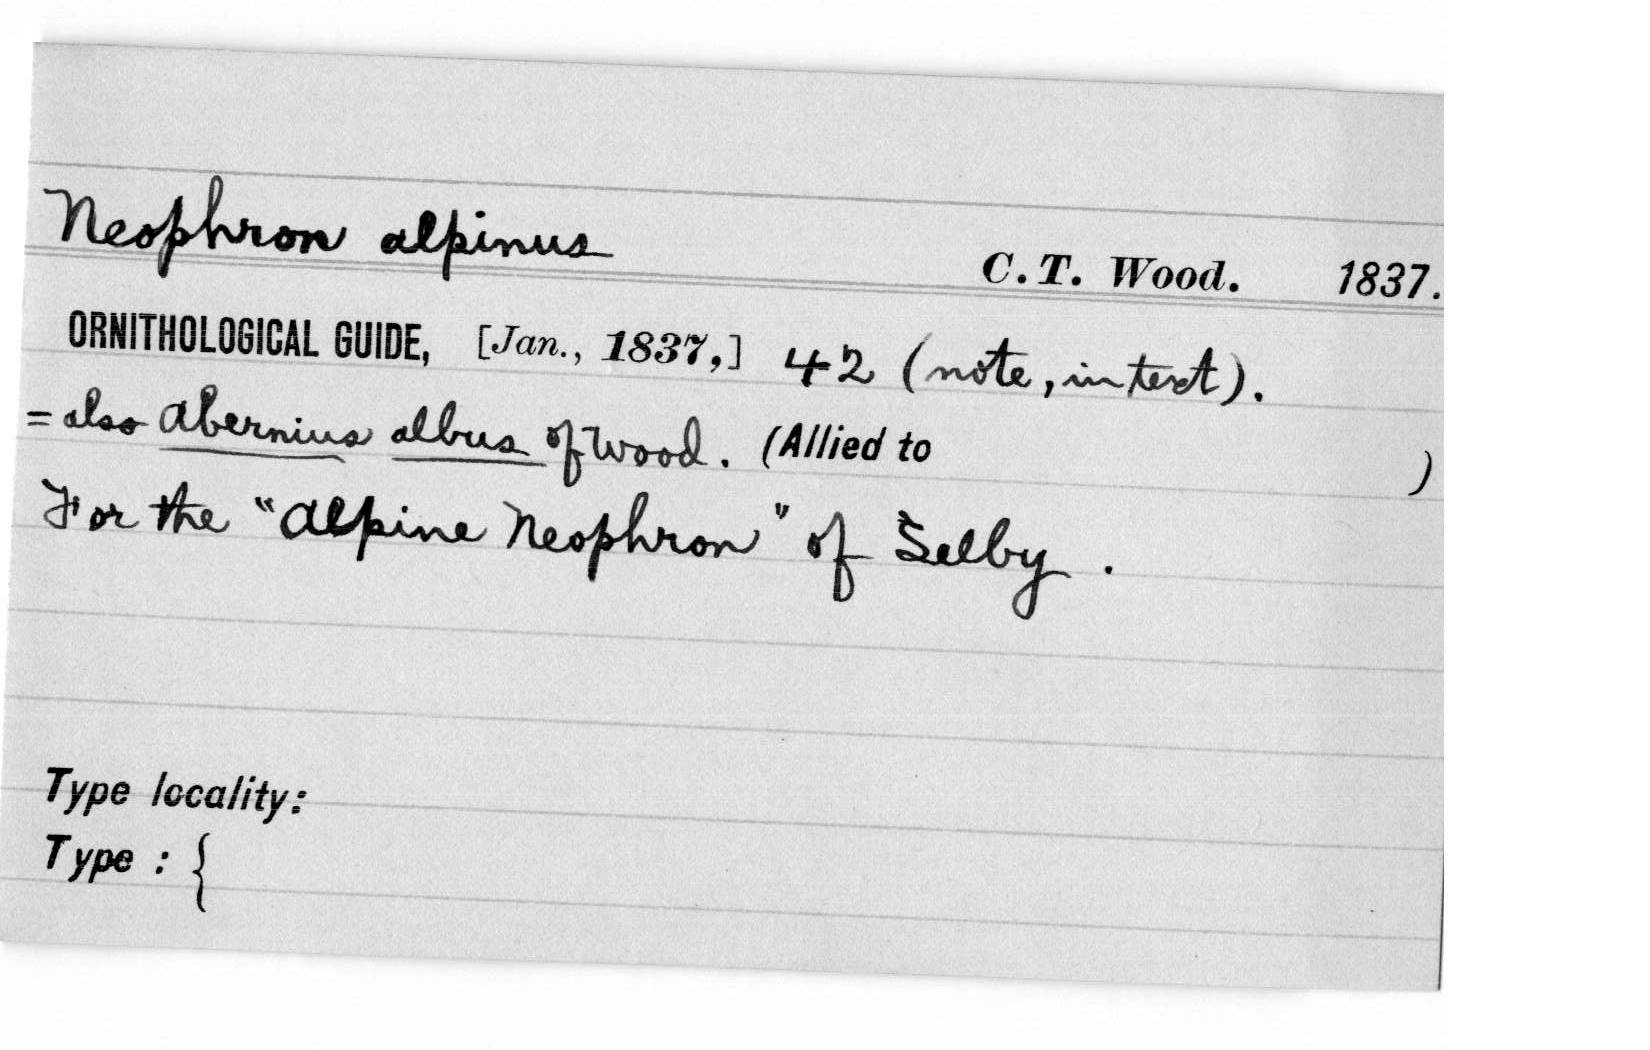 Neophron alpinus C.T. Wood. 1837.
ORNITHOLOGICAL GUIDE, [Jan., 1837,] 42 (note, in text).
= also Abernius albus of Wood. (Allied to )
For the "Alpine Neophron" of Selby.
Type locality:
Type : {